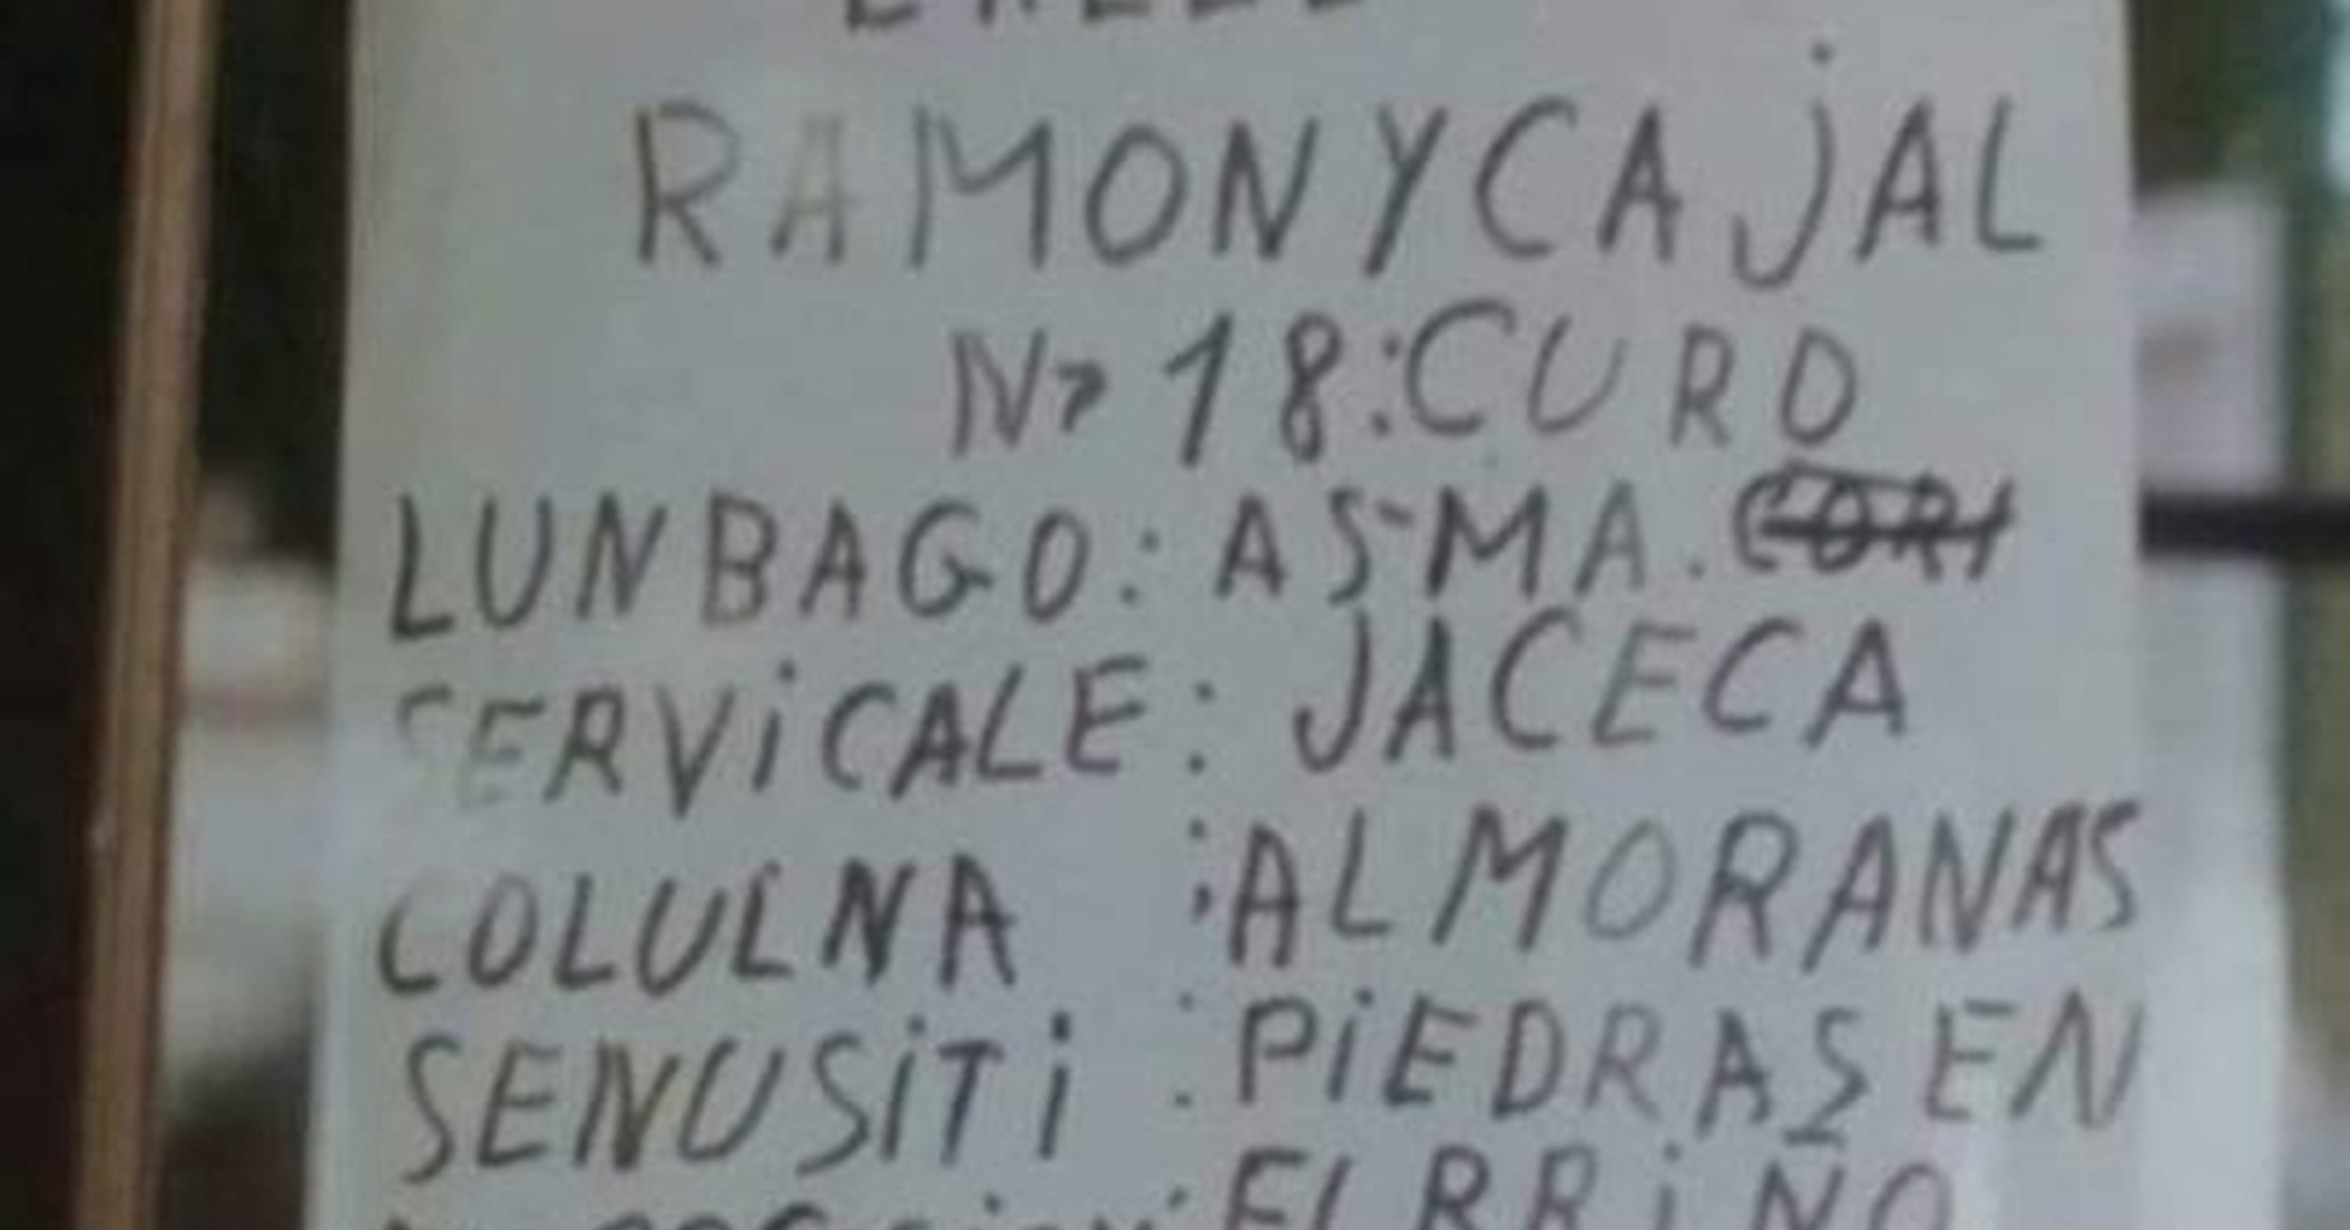 RAMONYCAJAL
Nº 18:CURO
LUNBAGO: ASMA.
SERVICALE: JACECA
COLULNA :ALMORANAS
SENUSITI :PIEDRAS EN
EL RRIÑO